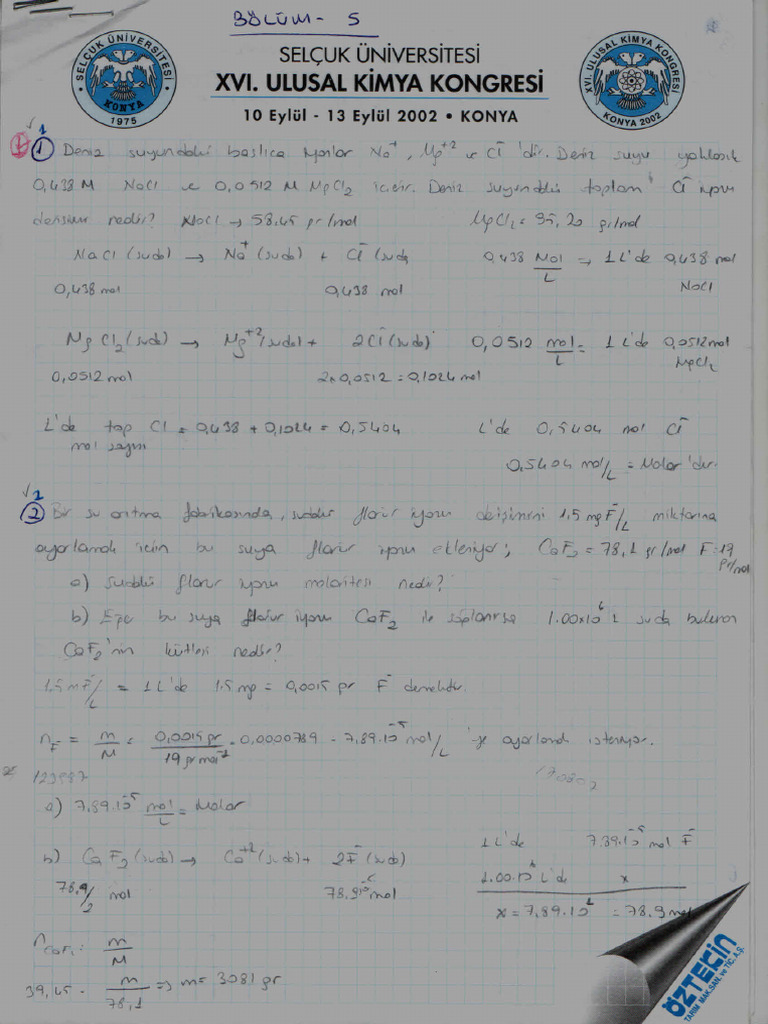 BÖLÜM - 5
SELÇUK ÜNİVERSİTESİ
XVI. ULUSAL KİMYA KONGRESİ
10 Eylül - 13 Eylül 2002 • KONYA
SELÇUK ÜNİVERSİTESİ KONYA 1975
XVI. ULUSAL KİMYA KONGRESİ KONYA 2002
1
① Deniz suyundaki başlıca iyonlar Na⁺, Mg⁺² ve Cl⁻'dir. Deniz suyu yaklaşık
0,438 M NaCl ve 0,0512 M MgCl₂ içerir. Deniz suyundaki toplam Cl⁻ iyonu
derişimi nedir? NaCl → 58,45 gr/mol MgCl₂ = 95,20 gr/mol
NaCl (suda) → Na⁺ (suda) + Cl⁻ (suda 0,438 Mol/L ⇒ 1 L'de 0,438 mol
0,438 mol 0,438 mol NaCl
MgCl₂ (suda) → Mg⁺² (suda) + 2Cl⁻ (suda) 0,0512 mol/L = 1 L'de 0,0512 mol
0,0512 mol 2x0,0512 = 0,1024 mol MgCl₂
L'de top Cl⁻ = 0,438 + 0,1024 = 0,5404 L'de 0,5404 mol Cl⁻
mol sayısı
0,5404 mol/L = Molar'dır.
2
② Bir su arıtma fabrikasında, sudaki florür iyonu derişimini 1,5 mg F⁻/L miktarına
ayarlamak için bu suya florür iyonu ekleniyor; CaF₂ = 78,1 gr/mol F:19 gr/mol
a) Sudaki florür iyonu molaritesi nedir?
b) Eğer bu suya florür iyonu CaF₂ ile saplanırsa 1.00x10⁶ L suda bulunan
CaF₂'nin kütlesi nedir?
1,5 mg F⁻/L = 1 L'de 1,5 mg = 0,0015 gr F⁻ demektir.
n_F = m/M = 0,0015 gr / 19 gr mol⁻¹ = 0,0000789 = 7,89.10⁻⁵ mol/L 'ye ayarlamak isteniyor.
a) 7,89.10⁻⁵ mol/L = Molar
b) CaF₂ (suda) → Ca⁺² (suda) + 2F⁻ (suda)
78,9/2 mol 78,9 mol
1 L'de 7,89.10⁻⁵ mol F⁻
1.00.10⁶ L'de x
x = 7,89.10¹ = 78,9 mol
n_CaF₂ = m/M
39,45 = m/78,1 ⇒ m = 3081 gr
ÖZTEKİN
TARIM MAK.SAN. ve TİC. A.Ş.